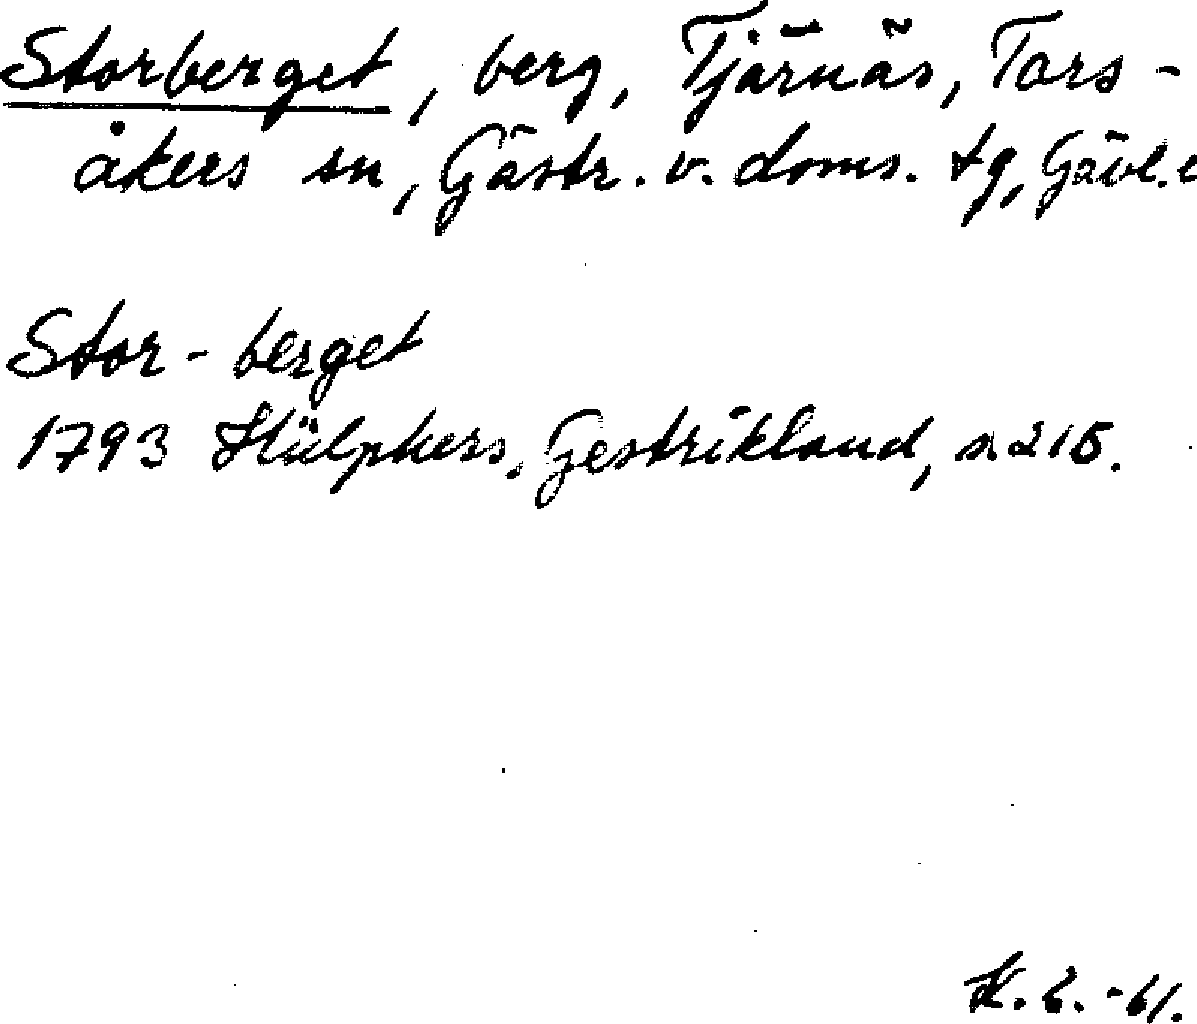 Storberget, berg, Tjärnäs, Tors-
åkers sn, Gästr. v. doms. tg, Gävl.
Stor-berget
1793 Hülphers, Gestrikland, s 215.
-61.